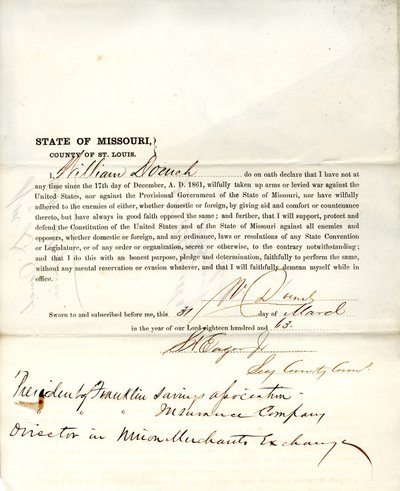 STATE OF MISSOURI,
COUNTY OF ST. LOUIS.
I, William Doench do on oath declare that I have not at
any time since the 17th day of December, A. D. 1861, wilfully taken up arms or levied war against the
United States, nor against the Provisional Government of the State of Missouri, nor have wilfully
adhered to the enemies of either, whether domestic or foreign, by giving aid and comfort or countenance
thereto, but have always in good faith opposed the same; and further, that I will support, protect and
defend the Constitution of the United States and of the State of Missouri against all enemies and
opposers, whether domestic or foreign, and any ordinance, laws or resolutions of any State Convention
or Legislature, or of any order or organization, secret or otherwise, to the contrary notwithstanding;
and that I do this with an honest purpose, pledge and determination, faithfully to perform the same,
without any mental reservation or evasion whatever, and that I will faithfully demean myself while in
office.
Wm
Sworn to and subscribed before me, this 31 day of March
in the year of our Lord eighteen hundred and 63.
Jr
County
President of Franklin Savings association
" " " Insurance Company
Director in Union Merchants Exchange